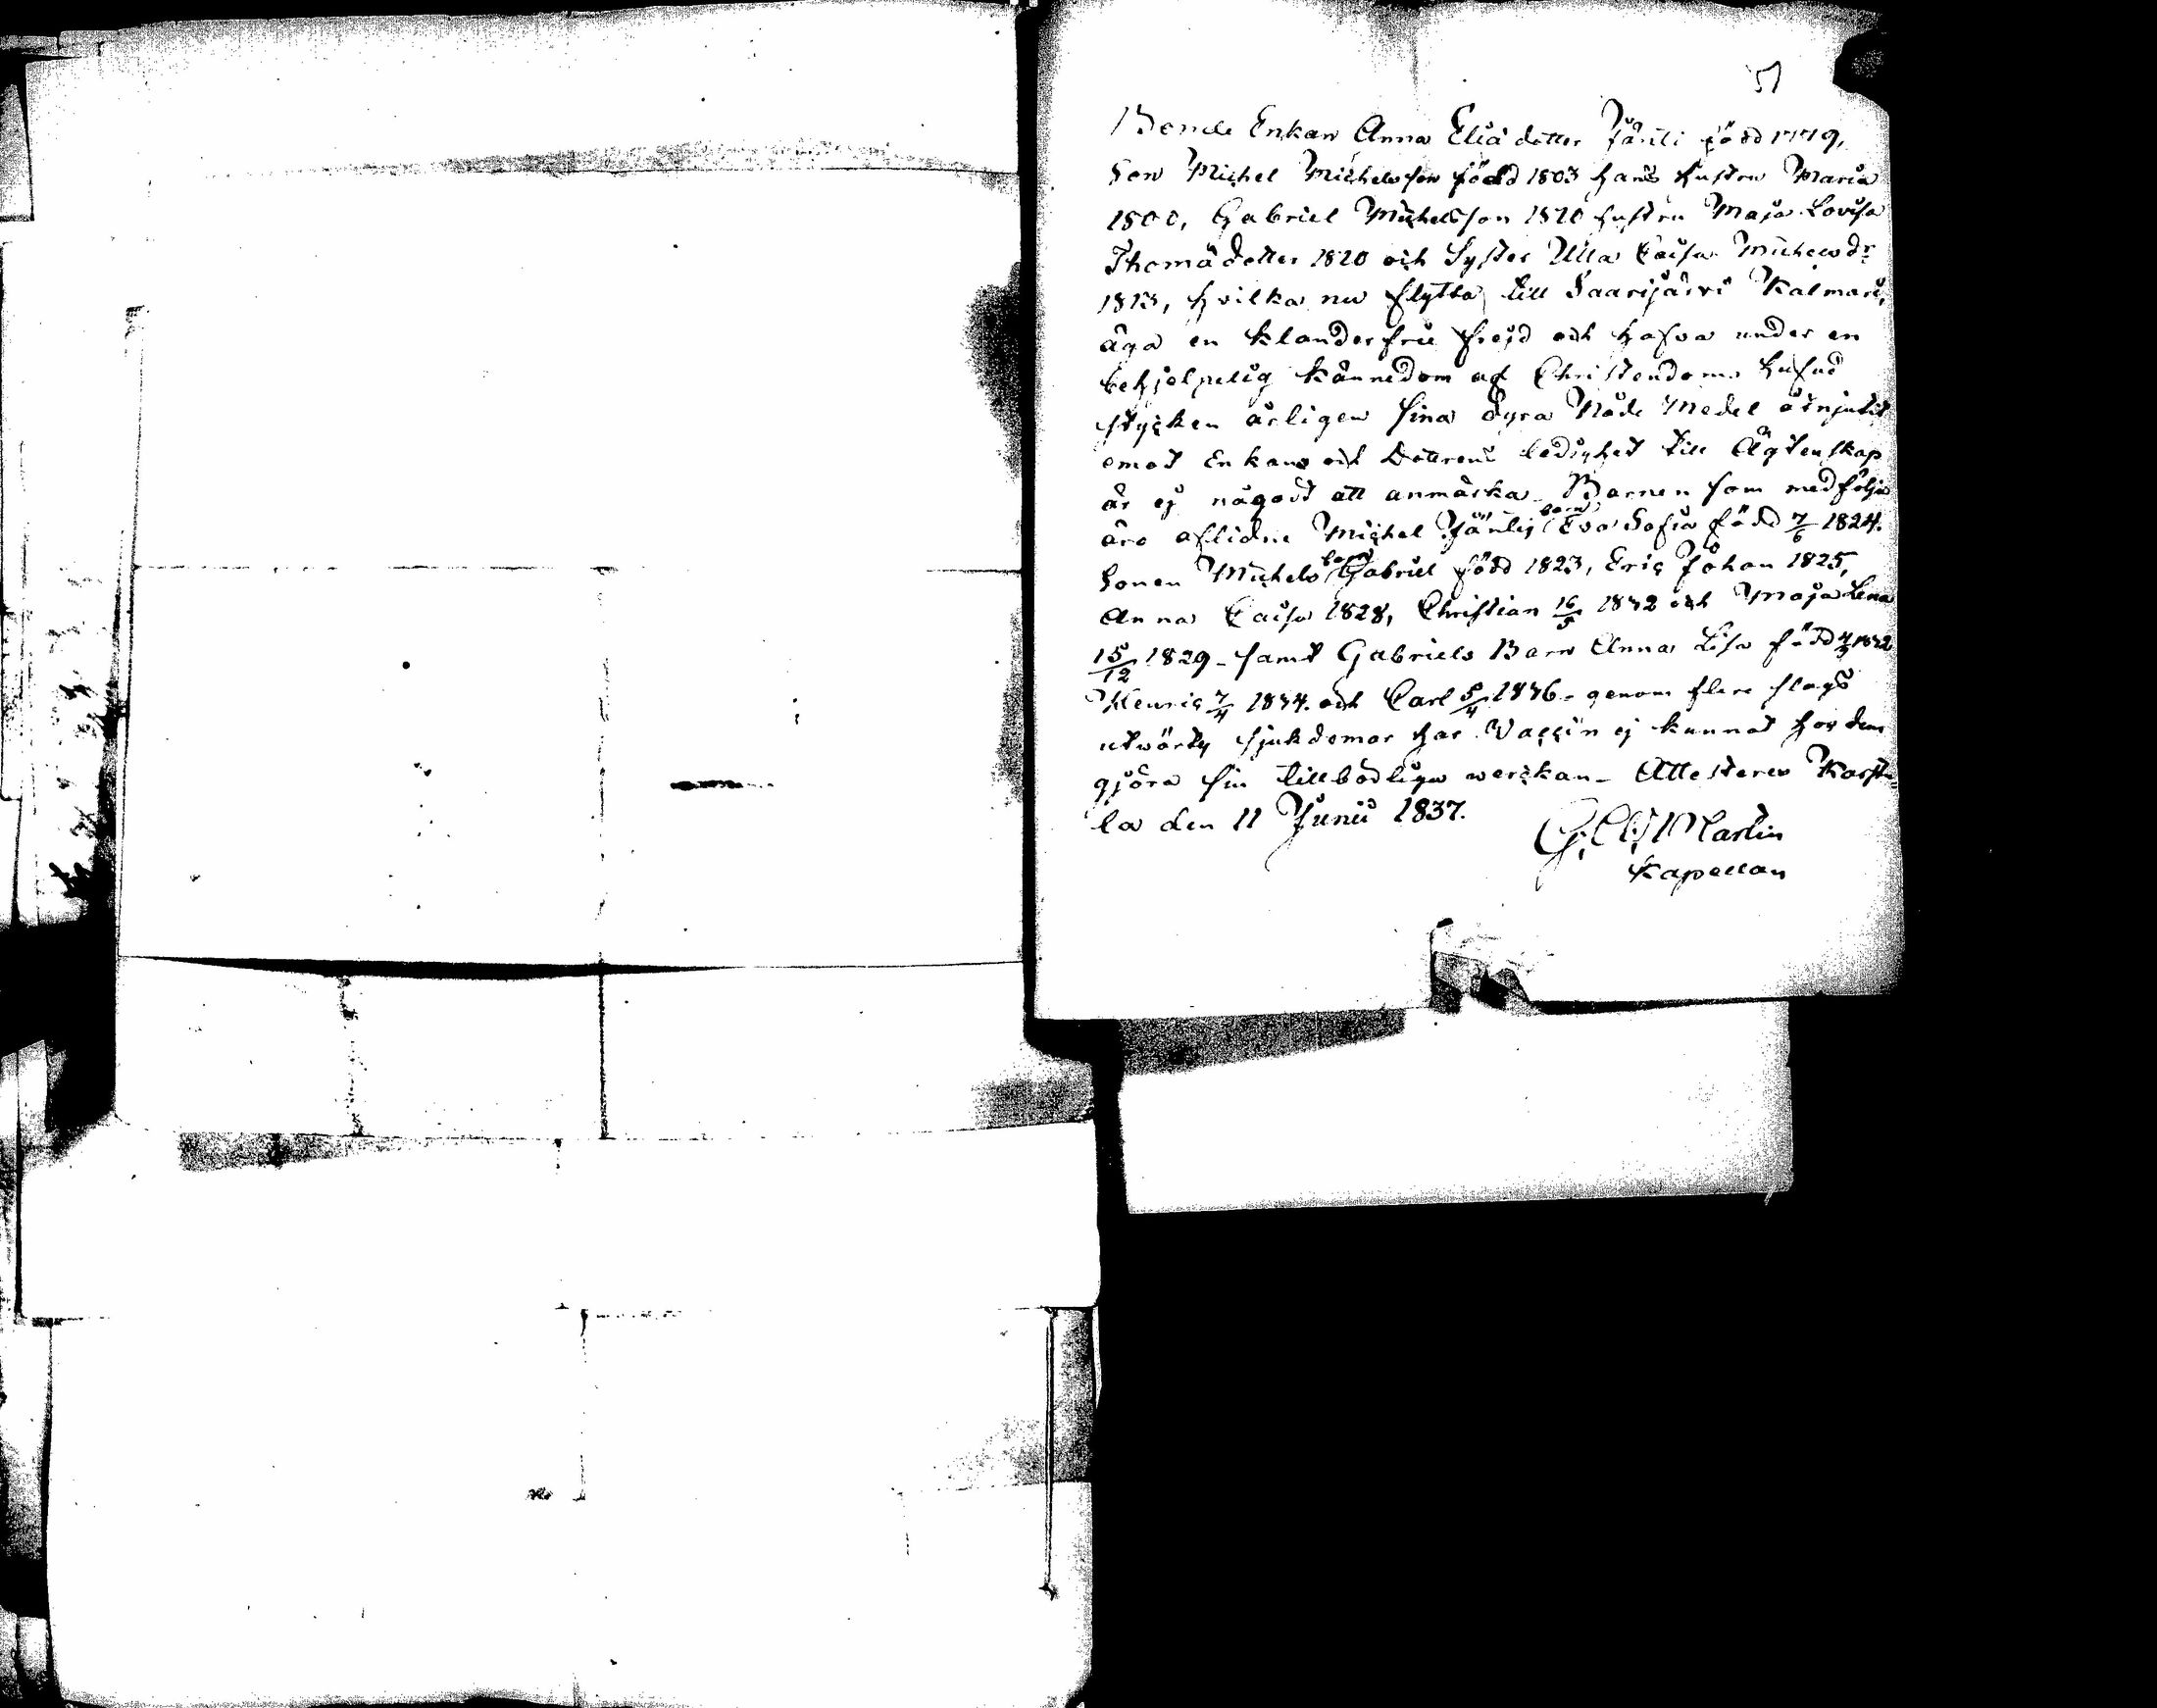 51
Bonde Enkan Anna Eliä dotter Jänti född 1779,
Son Michel Michelsson född 1803 hans hustru Maria
1800, Gabriel Michelsson 1810 hustru Maja Lovisa
Thomädotter 1810 och Syster Ulla Caisa Michelsdr
1813, hvilka nu flytta till Saarijärvi Kalmari,
äga en klanderfri frejd och hafva under en
behjelpelig kännedom af Christendoms hufvud
stycken årligen sina dyra Nåde Medel åtnjutit
emot Enkans och Dottrens ledighet till Ägtenskap
är ej något att anmärka. Barnen som medfölja
äro aflidne Michel Jäntis barn Eva Sofia född 7/6 1824.
Sonen Michels barn Gabriel född 1823, Eric Johan 1825,
Anna Caisa 1828, Christian 16/5 1832 och Maja Lena
15/12 1829 - samt Gabriels Barn Anna Lisa född 1832
Henric 7/4 1834. och Carl 5/4 1836 - genom flere slags
utwärtes sjukdomar har Vaccin ej kunnat hos dem
gjöra sin tillbörliga werckan - Attesteras Karstu=
la den 11 Junii 1837.
Martin
Kapellan